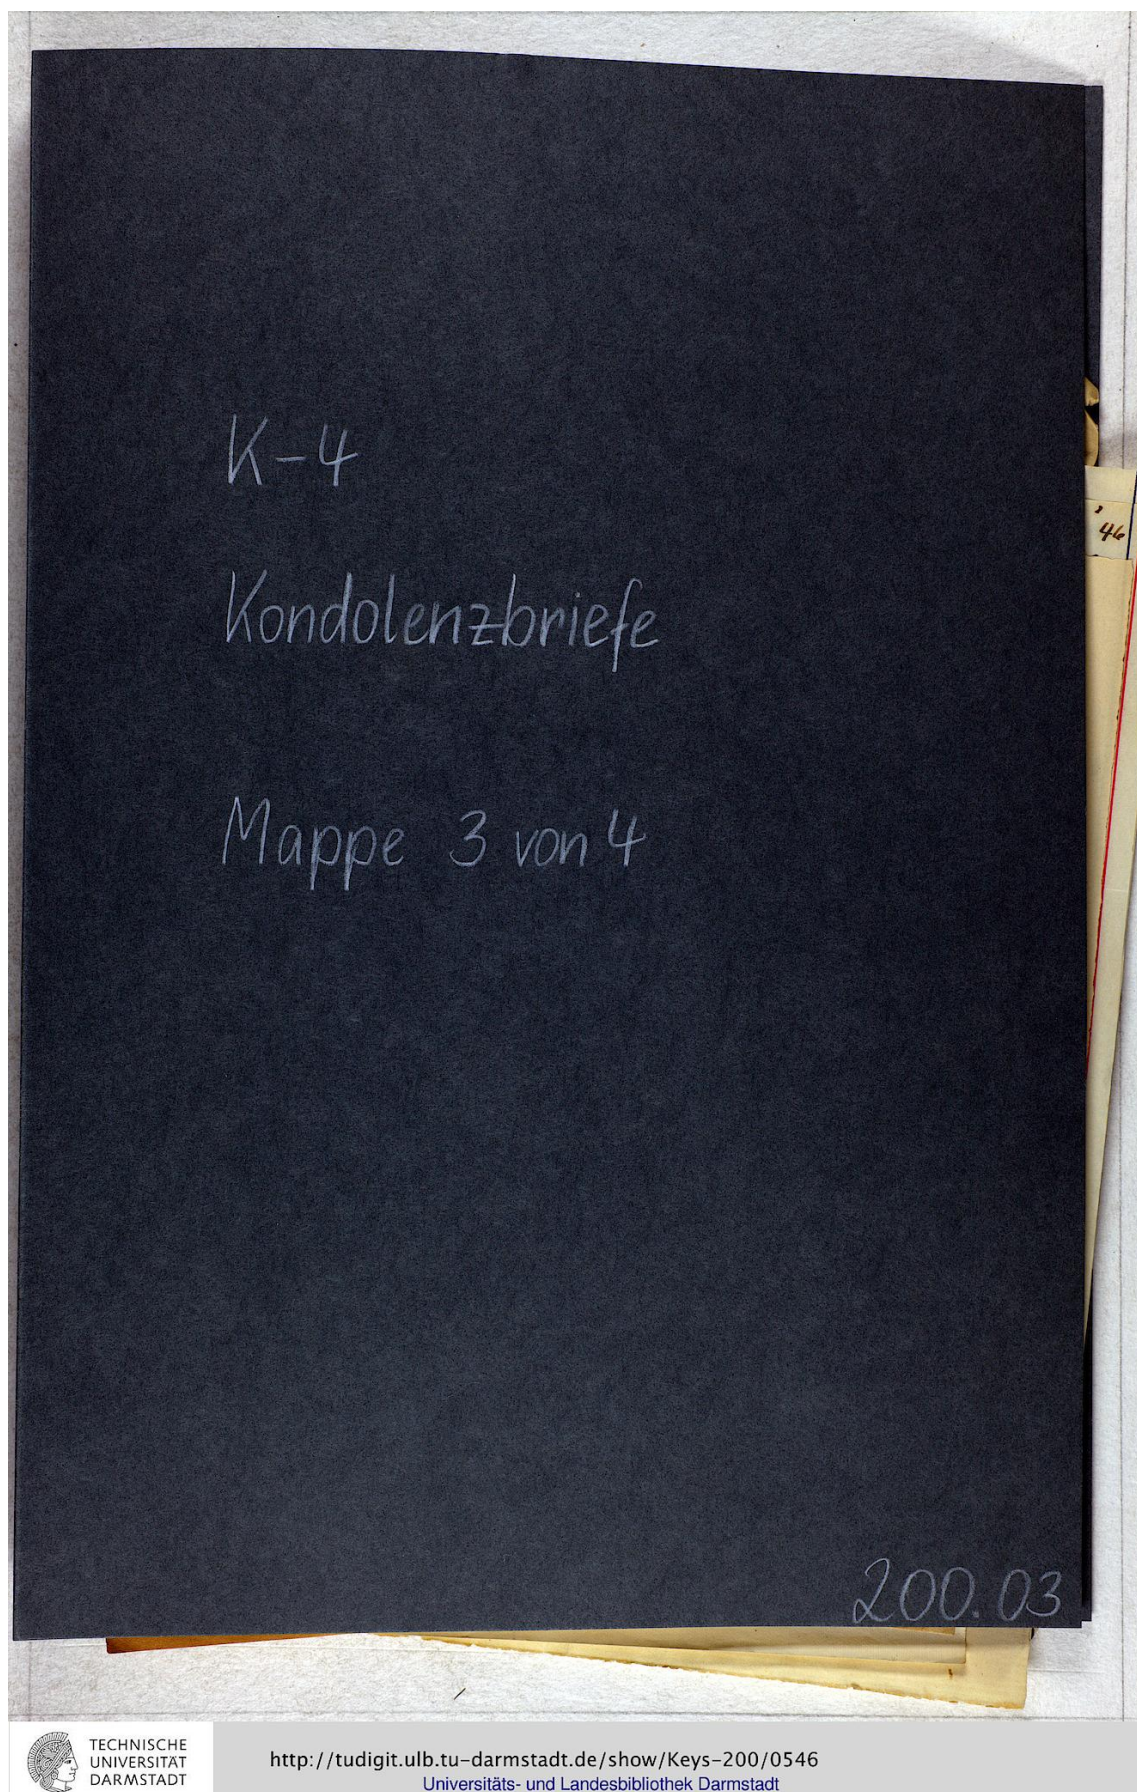 K-4
' 46
Kondolenzbriefe
Mappe 3 von 4
200.03
TECHNISCHE
UNIVERSITÄT
DARMSTADT
http://tudigit.ulb.tu-darmstadt.de/show/Keys-200/0546
Universitäts- und Landesbibliothek Darmstadt